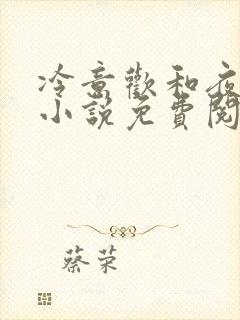 冷意歡和夜
小說免費閱
蔡荣